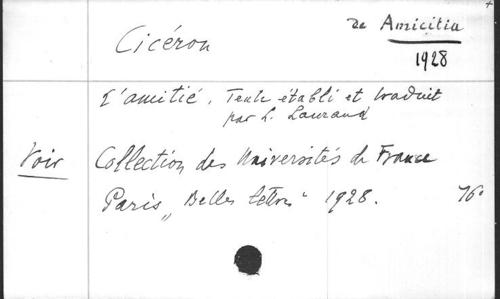 Cicéron
De Amicitia
1928
L'amitié. Texte établi et traduit
par L. Laurand
Voir Collection des Universités de France
Paris „Belles Lettres“ 1928. 76°